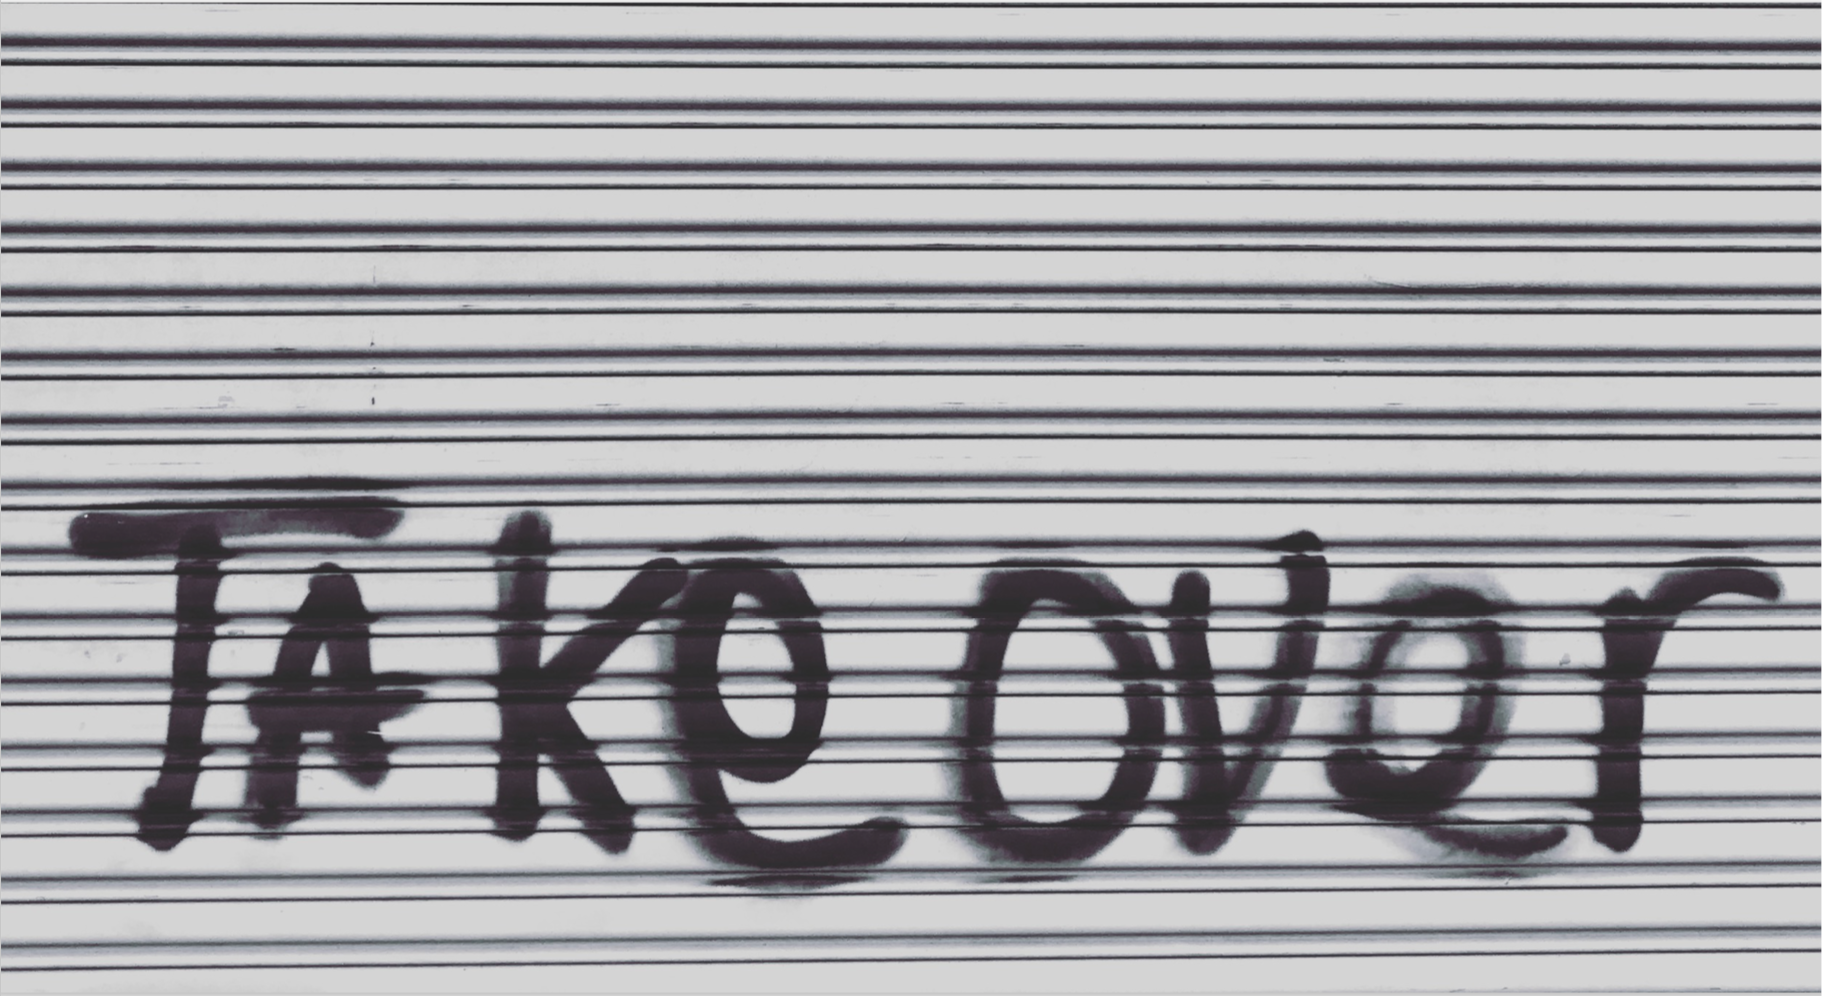 TAke over